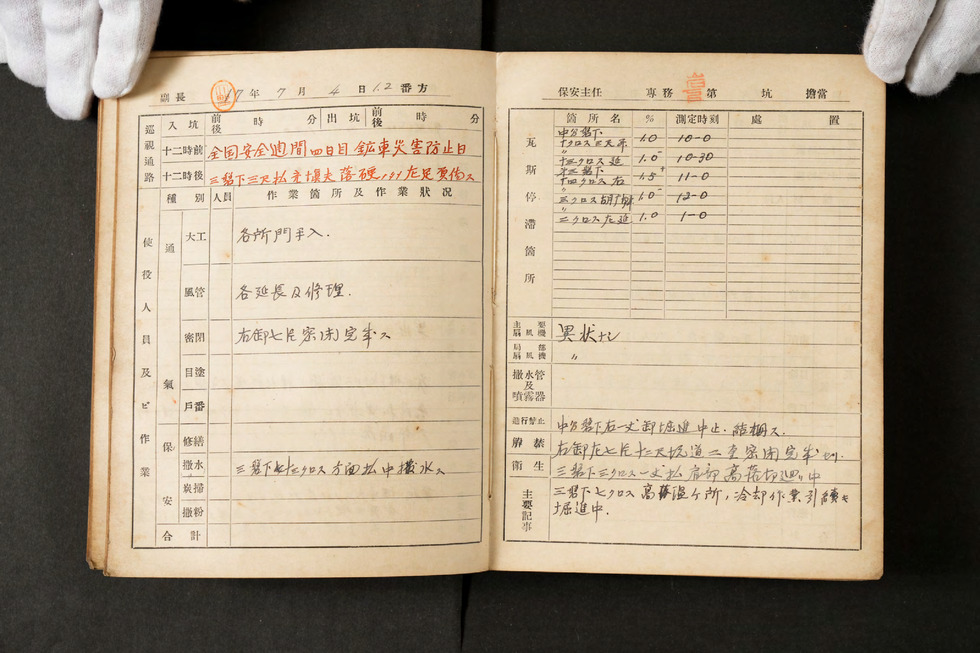 副長 17年7月4日1.2番方
巡視通路
入坑 前後 時 分 出坑 前後 時 分
十二時前 全国安全週間四日目 鉱車災害防止日
十二時後 三磐下三尺払 落硬 左足負傷ス
種別 人員 作業箇所及作業状況
使役人員及ビ作業
通氣
大工 各所門手入.
風管 各延長及修理.
密閉 右卸七片密閉完成ス
目塗
戸番
保安
修繕
撒水 三磐下 クロス方面払中撒水ス
炭掃
撒粉
合計
保安主任 専務 第 坑 擔當
瓦斯停滞箇所
箇所名 % 測定時刻 處置
中分磐下
クロス 1.0 10-0
〃
クロス延 1.0 10-30
磐下
クロス右 1.5 11-0
〃
三クロス 1.0 12-0
〃
二クロス左延 1.0 1-0
主要扇風機 異状ナシ
局部扇風機 〃
撒水管及噴霧器
進行禁止 中分磐下右一丈卸堀進中止.結柵ス.
解禁 右卸左七片十二尺坑道二至密閉完成
衛生 三磐下三クロス一丈払肩部高落切廻 中
主要記事
三磐下七クロス高落温ヶ所,冷却作業引続キ
堀進中.